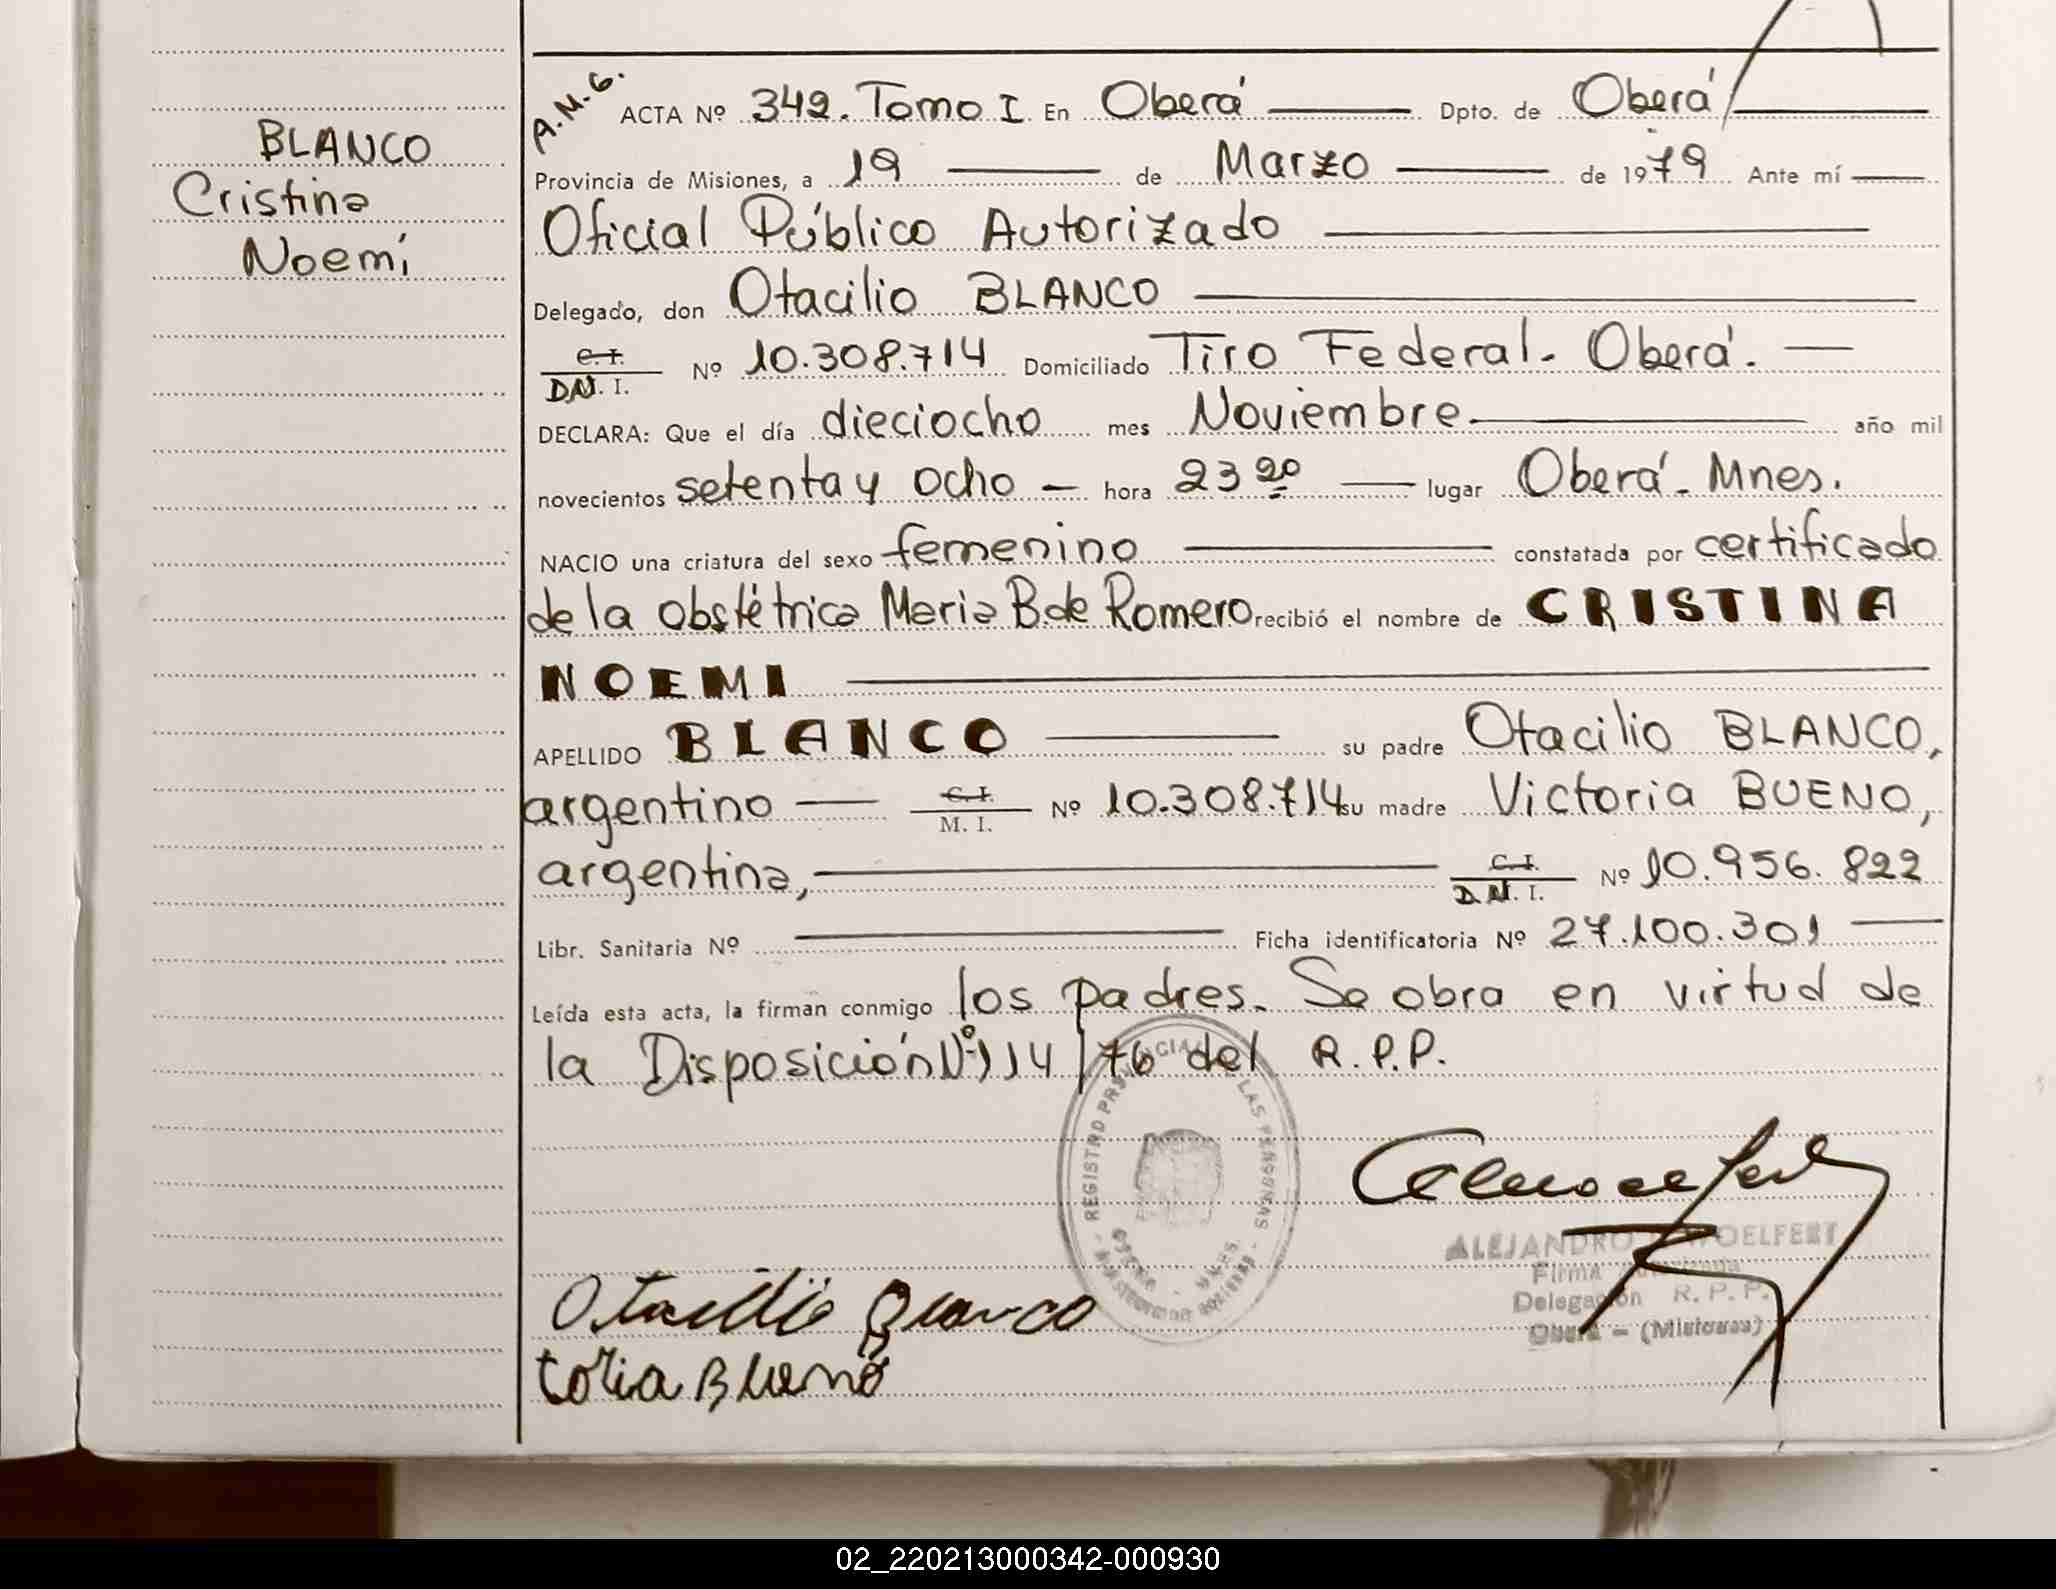 BLANCO
Cristina
Noemí
A.M.G.
ACTA Nº 342. Tomo I En Oberá Dpto. de Oberá
Provincia de Misiones, a 19 de Marzo de 1979 Ante mí
Oficial Público Autorizado
Delegado, don Otacilio BLANCO
C.I.
D.N.I. Nº 10.308.714 Domiciliado Tiro Federal. Oberá.
DECLARA: Que el día dieciocho mes Noviembre año mil
novecientos setenta y ocho hora 23 20 lugar Oberá. Mnes.
NACIO una criatura del sexo femenino constatada por certificado
de la obstétrica Maria B. de Romero recibió el nombre de CRISTINA
NOEMI
APELLIDO BLANCO su padre Otacilio BLANCO,
argentino C.I. M.I. Nº 10.308.714 su madre Victoria BUENO,
argentina, C.I. D.N.I. Nº 10.956.822
Libr. Sanitaria Nº Ficha identificatoria Nº 27.100.301
Leída esta acta, la firman conmigo los padres. Se obra en virtud de
la Disposición Nº 114/76 del R.P.P.
REGISTRO PROVINCIAL DE LAS PERSONAS
ALEJANDRO WOELFERT
Firma Autorizada
Delegación R.P.P.
Oberá - (Misiones)
Otacilio Blanco
toria Bueno
02_220213000342-000930